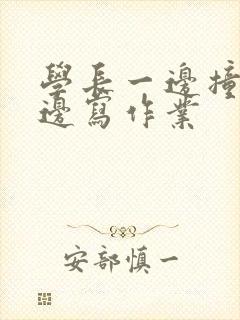 學長一邊撞
邊寫作業
安部慎一